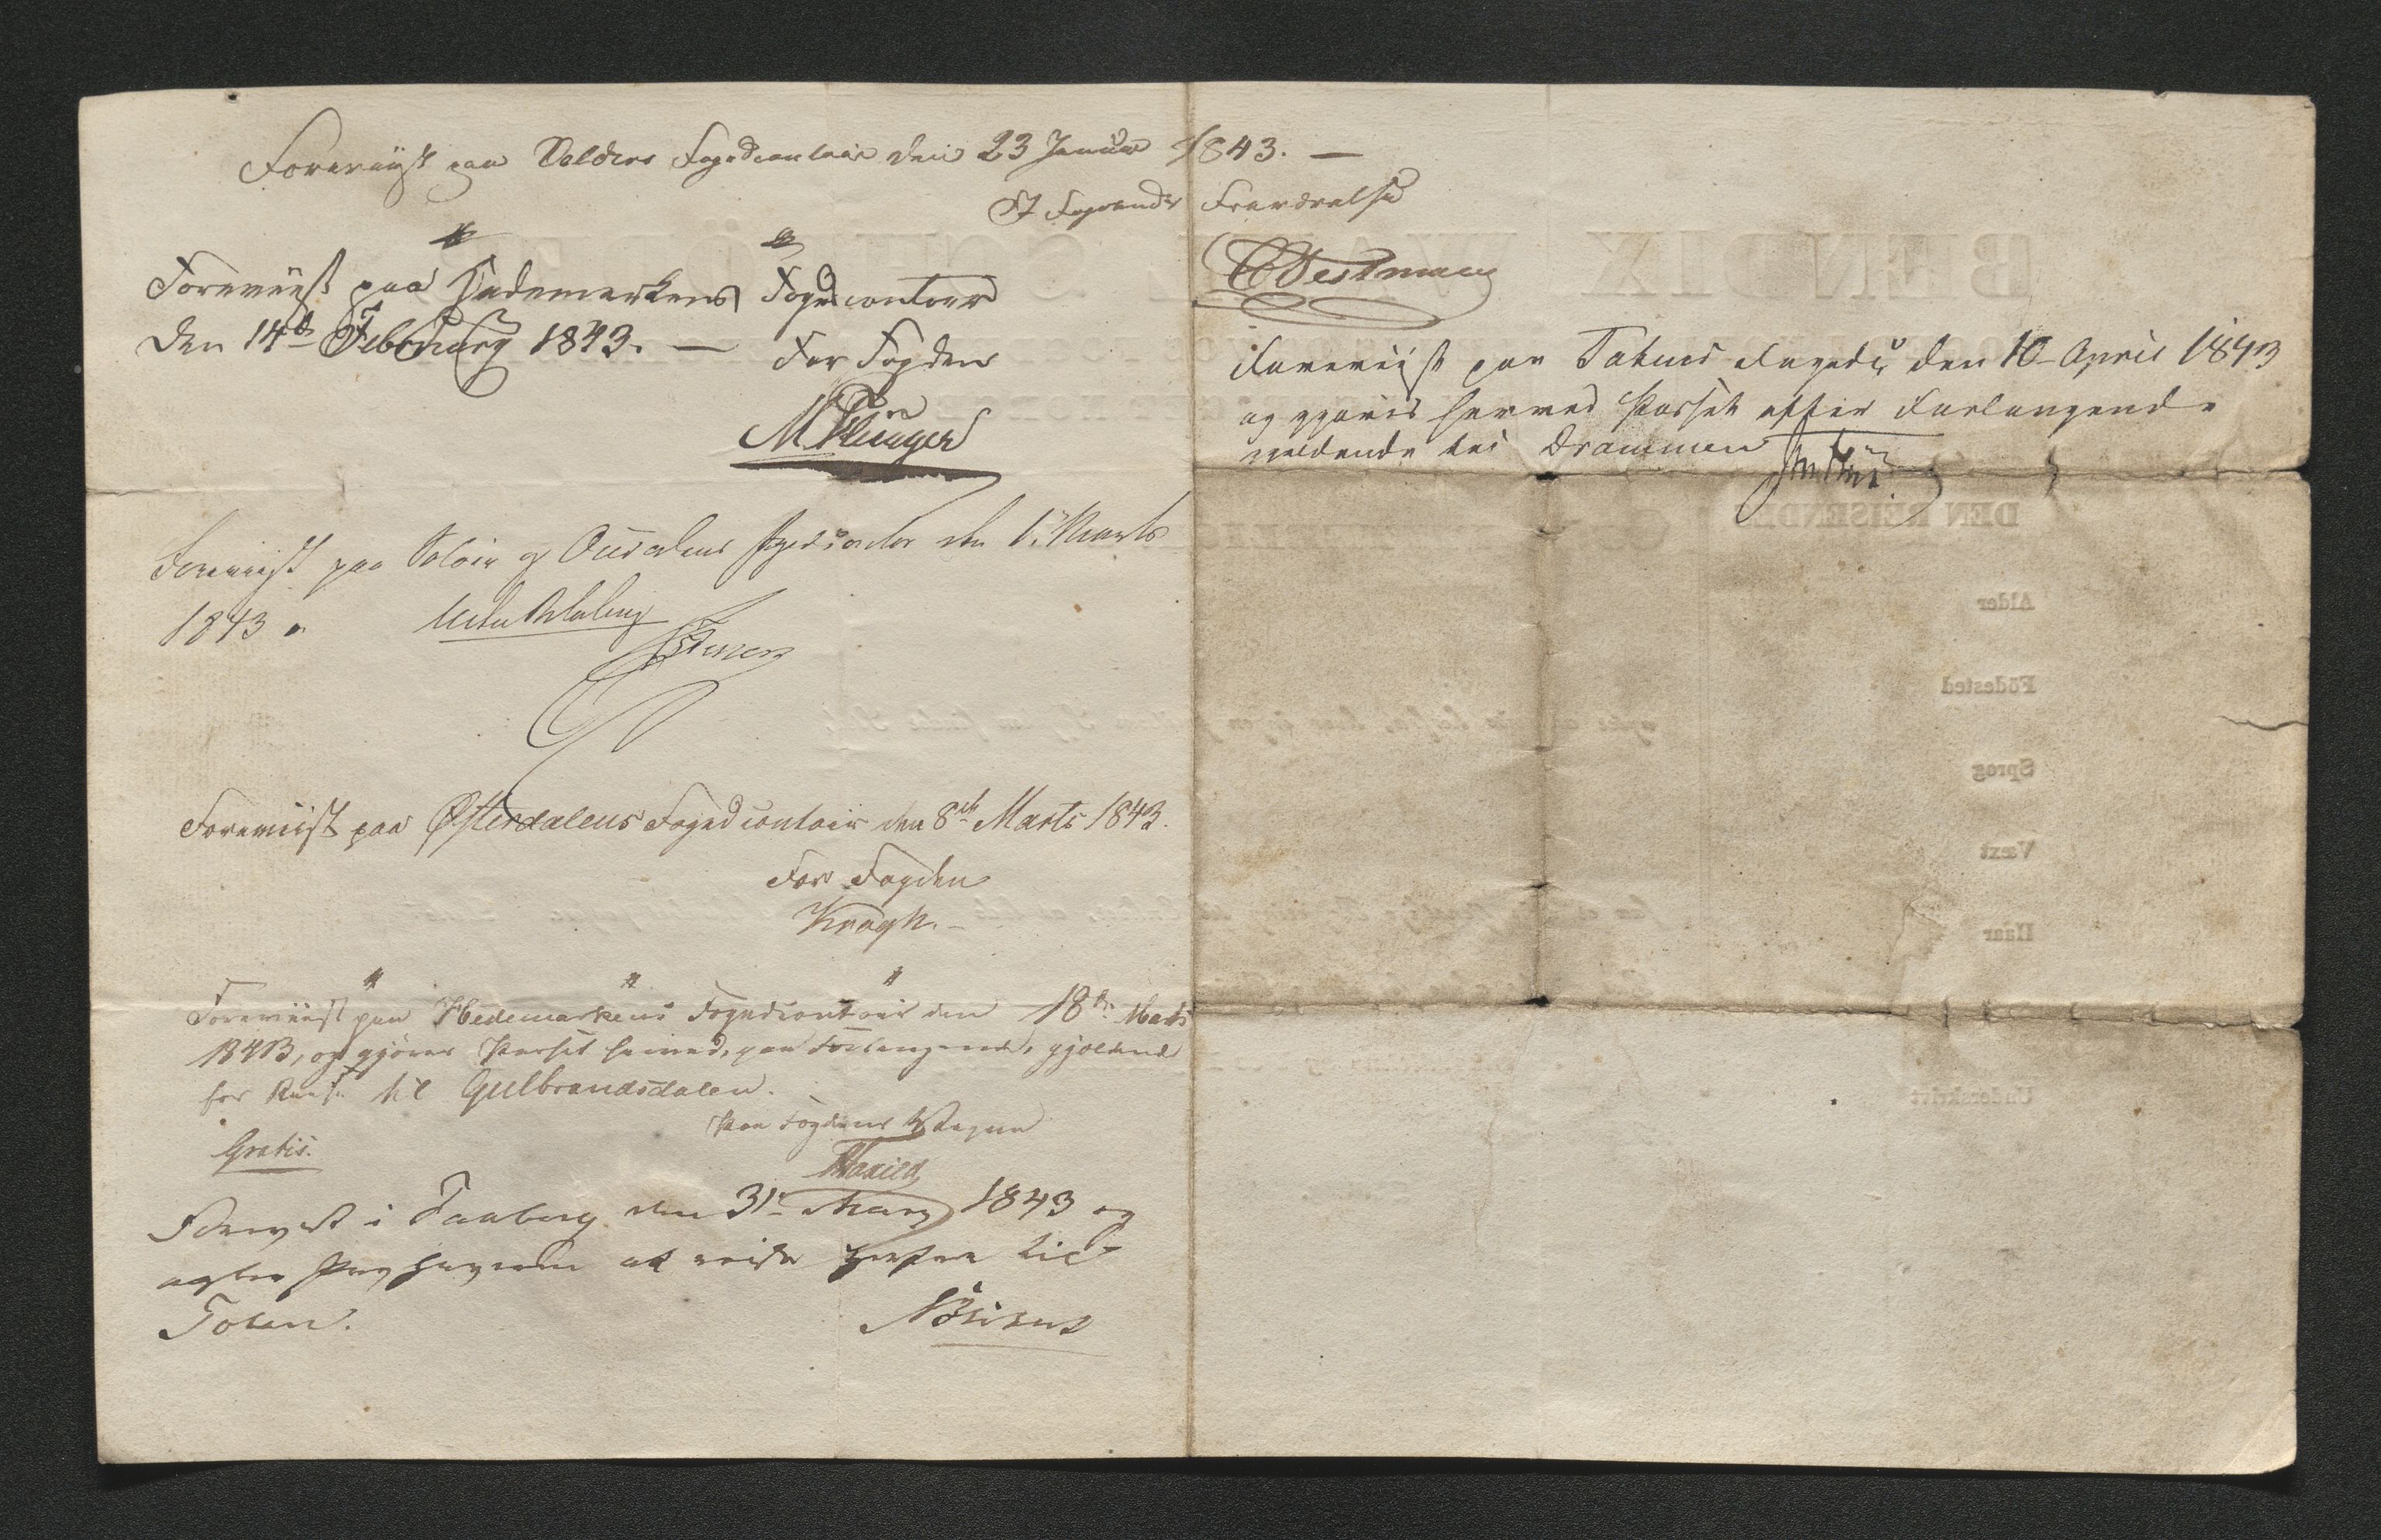 Foreviist paa Valders Fogedcontoir den 23 Januar 1843. —
I Fogdens Fraværelse
CWestmann
Foreviist paa Hedemarkens Fogedcontoir
den 14de Februarj 1843. —
For Fogden
M Plünger
Foreviist paa Soløer og Oudalens Fogedcontor den 1. Marts
1843.
Foreviist paa Østerdalens Fogedcontoir den 8de Marts 1843.
For Fogden
Kragh.
Foreviist paa Hedemarkens Fogedcontoir den 18de Marts
1843, og gjøres Passet herved, paa Forlangende, gjældende
for Reise til Gulbrandsdalen.
Paa Fogdens Vegne
Gratis.
Forevist i Faaberg den 31te Marz 1843 og
agter Pashaveren at reise herfra til
Toten.
Foreviist paa Totens Fogedie den 10 April 1843
og gjøres herved Passet efter Forlangende
gjeldende til Drammen
BENDIX
DEN REISENDES
Alder
Födested
Sprog
Væxt
Haar
Underskrivt